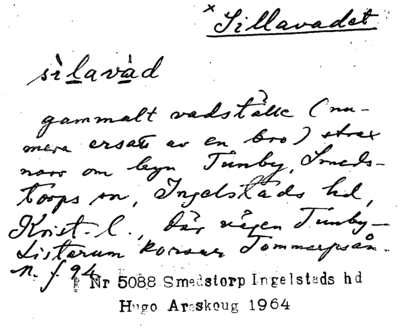 × Sillavadet
sìlavàd
gammalt vadställe (nu-
mera ersatt av en bro) strax
norr om byn Tunby, Smeds-
torps sn, Ingelstads hd,
Krist. l., där vägen Tunby–
Listarum korsar Tommarpsån.
N. f 94
Nr 5088 Smedstorp Ingelstads hd
Hugo Areskoug 1964